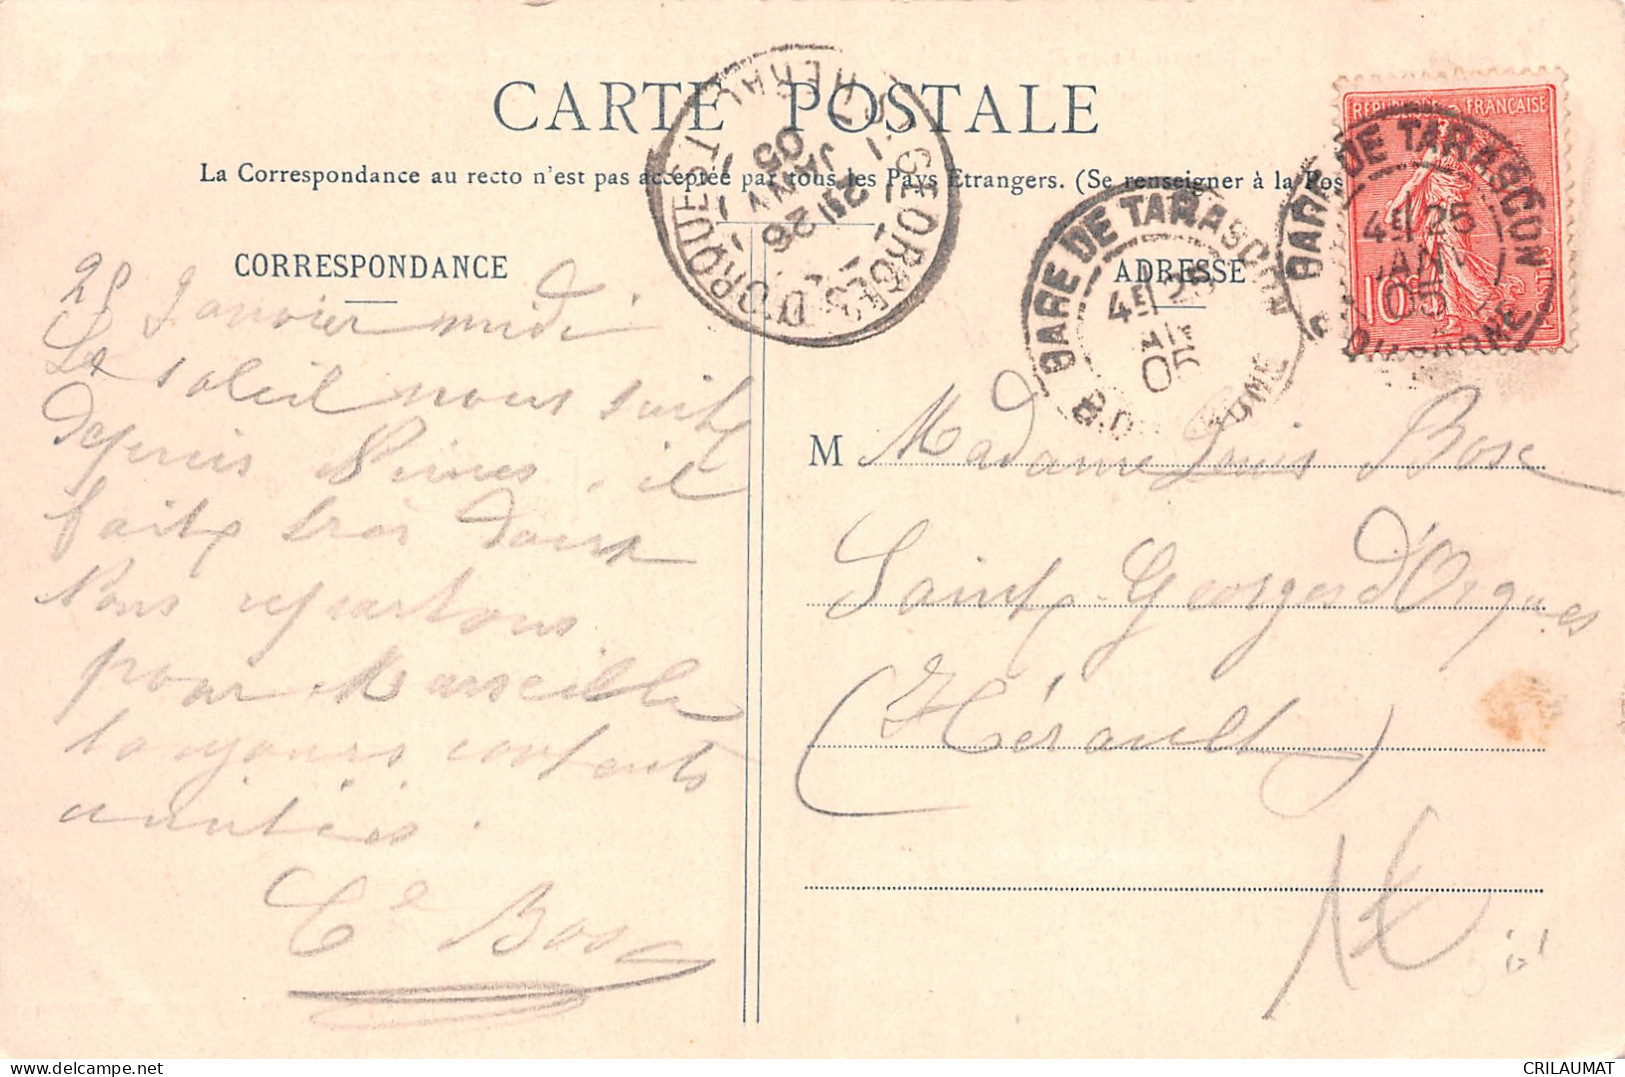 CARTE POSTALE
La Correspondance au recto n'est pas acceptée par tous les Pays Etrangers. (Se renseigner à la Pos
CORRESPONDANCE
ADRESSE
25 Janvier midi
Le soleil nous suit
depuis Nimes, il
fait très doux
Nous repartons
pour Marseille
toujours contents
amitiés.
Ce Bosc
M Madame Louis Bosc
Saint Georges d'Orques
(Hérault)
REPUBLIQUE FRANÇAISE
10
GARE DE TARASCON
4E 25
JANV
05
B. DU RHONE
GARE DE TARASCON
4E 25
05
B. DU RHONE
ST GEORGES D'ORQUES
HERAULT
26
JANV
05
CRILAUMAT